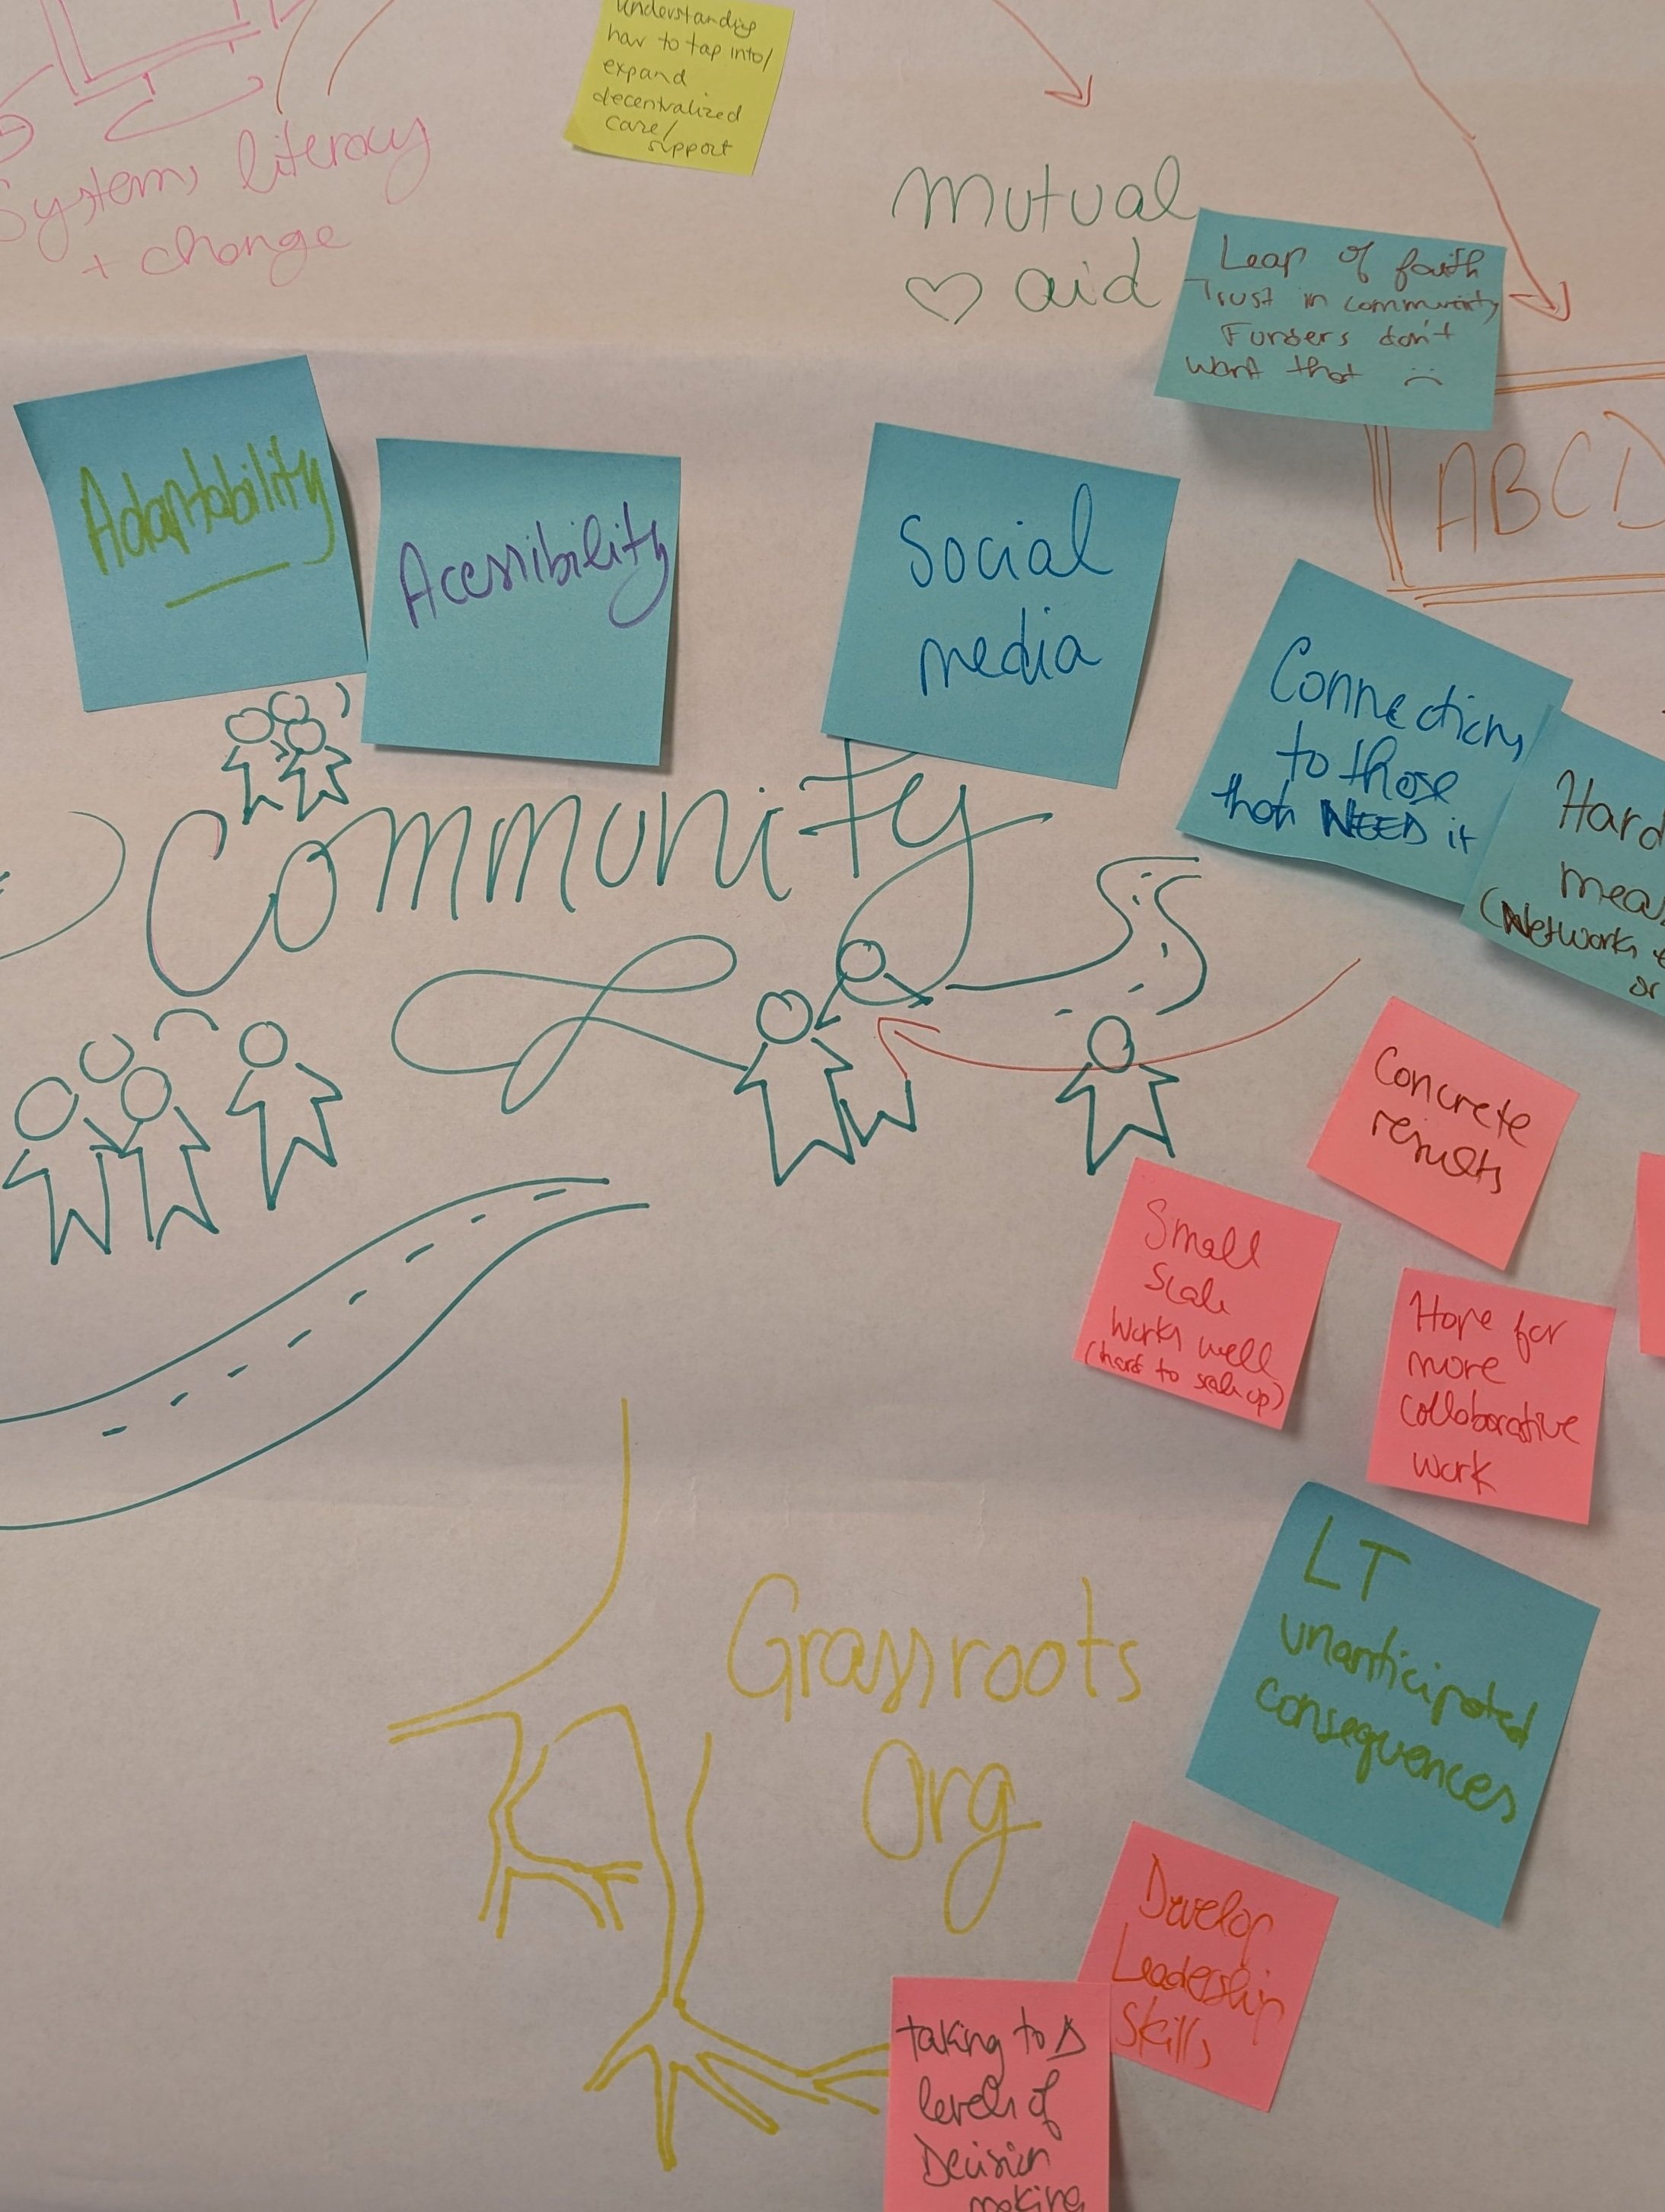 understanding
how to tap into/
expand
decentralized
care/
support
Systems literacy
+ change
mutual
♡ aid
Leap of faith
Trust in community
Funders don't
want that ☹
ABCD
Adaptability
Acessibility
Social
media
Connections
to those
that NEED it
Hard
meas
(Network
or
Community
Concrete
results
Small
scale
works well
(hard to scale up)
Hope for
more
collaborative
work
LT
unanticipated
consequences
Grassroots
Org
Develop
Leadership
Skills
taking to Δ
levels of
Decision
making